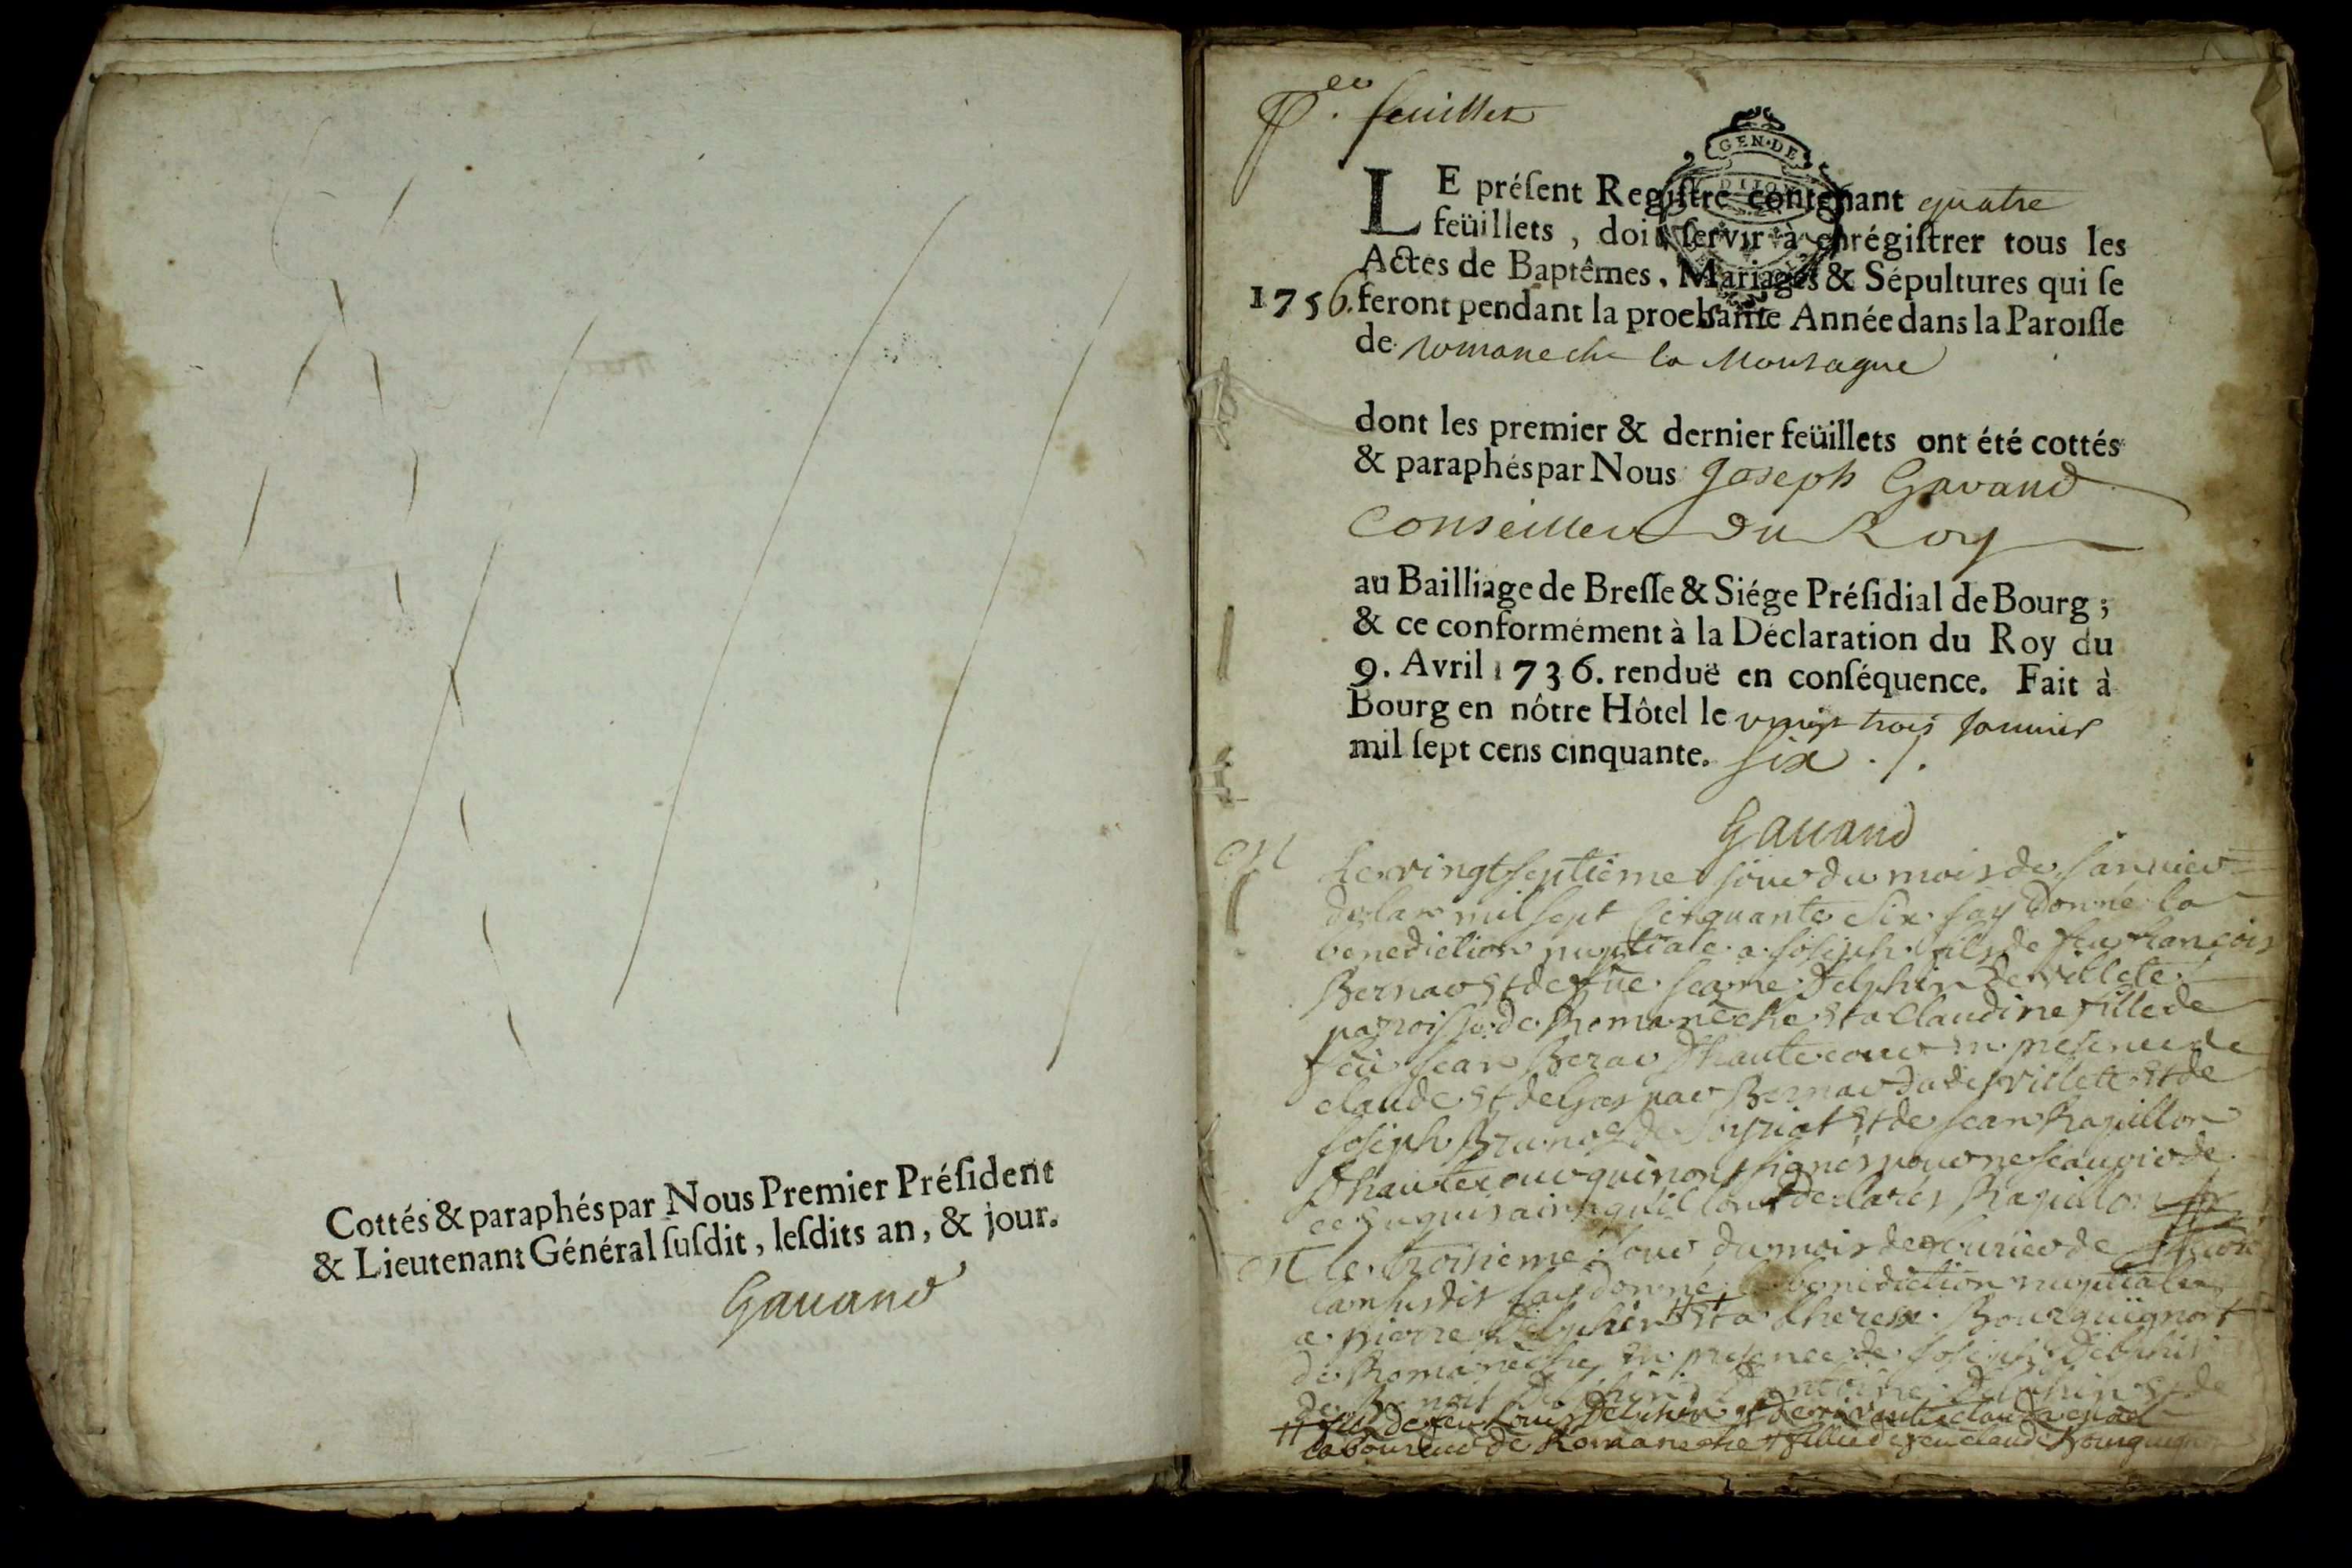 Cottés & paraphés par Nous Premier Préſident
& Lieutenant Général ſuſdit, leſdits an, & jour.
Gauand
P.er feuillet
GEN·DE
DIJON
LE préſent Regiſtre contenant quatre
feüillets, doit ſervir à enrégiſtrer tous les
Actes de Baptêmes, Mariages & Sépultures qui ſe
1756. feront pendant la prochaine Année dans la Paroiſſe
de romaneche la Montagne
dont les premier & dernier feüillets ont été cottés
& paraphés par Nous Joseph Gavand
Conseiller du Roy
au Bailliage de Breſſe & Siége Préſidial de Bourg ;
& ce conformément à la Déclaration du Roy du
9. Avril 1736. renduë en conſéquence. Fait à
Bourg en nôtre Hôtel le vingt trois janvier
mil ſept cens cinquante. six ./.
Gauand
M Le vingt septieme jour du mois de janvier
de lan mil sept cinquante six jay donné la
benediction nuptiale a joseph fils de feu francois
Bernar et de fue jeanne Delphin de villete
parroisse de Romanèche et a Claudine fille de
feu jean Berar dhautecour en presence de
claude et de gaspar Bernar dudit villete et de
joseph de et de jean Rapillon
dhautecour qui nont signes pour ne scavoir de
ce enquis ainsi quil ont declarés Rapillon
M le troisieme jour du mois de feurier de
lan susdit jay donné benediction nuptiale
a pierre Delphin # et a therese Bourguignon
de Romanèche en presence de joseph Delphin
de Benoit Delphin dantoine Delphin et de
# fils de feu Louis Delphin et de vivante claudine
laboureur de Romaneche fille de feu claude Bourguignon